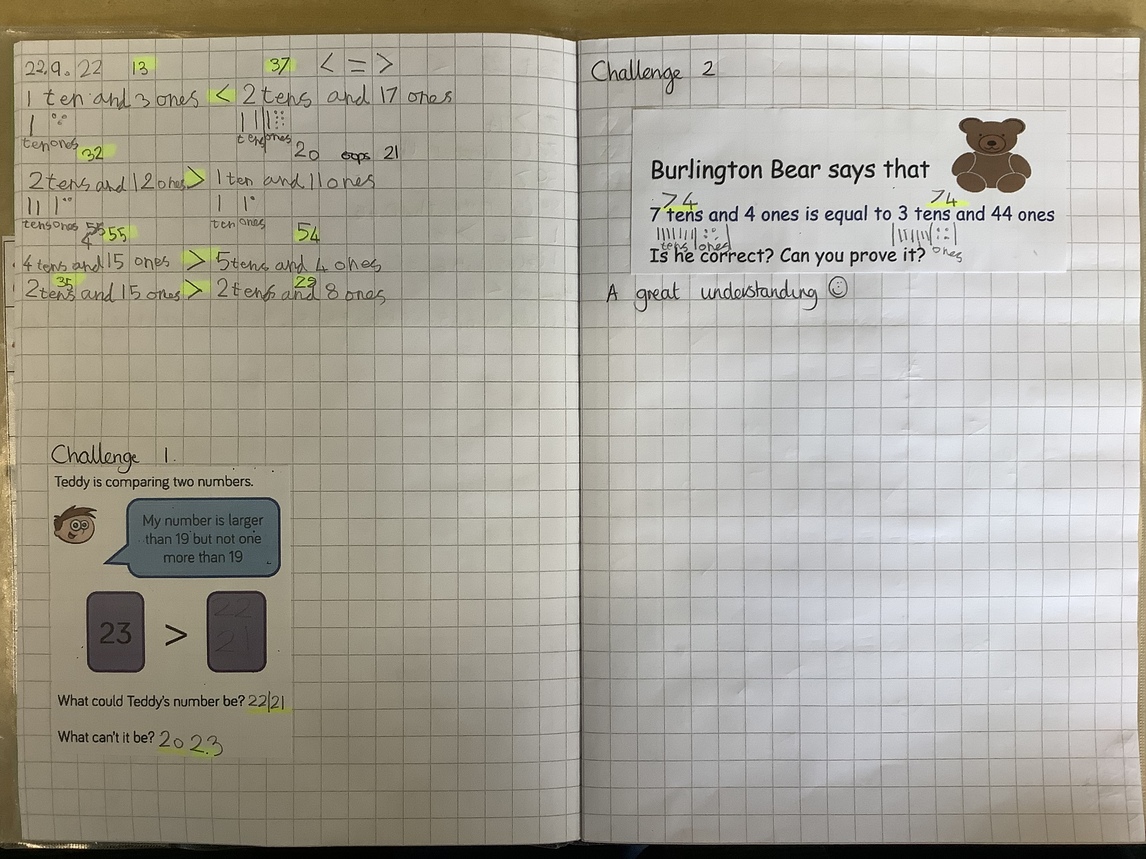 22.9.22 13 37 < = >
1 ten and 3 ones < 2 tens and 17 ones
ten ones tens ones
32 20 oops 21
2 tens and 12 ones > 1 ten and 11 ones
tens ones ten ones
55 54
4 tens and 15 ones > 5 tens and 4 ones
35 29
2 tens and 15 ones > 2 tens and 8 ones
Challenge 1.
Teddy is comparing two numbers.
My number is larger
than 19 but not one
more than 19
22
23 > 21
What could Teddy's number be? 22/21
What can't it be? 20 23
Challenge 2
Burlington Bear says that
74 74
7 tens and 4 ones is equal to 3 tens and 44 ones
tens ones ones
Is he correct? Can you prove it?
A great understanding